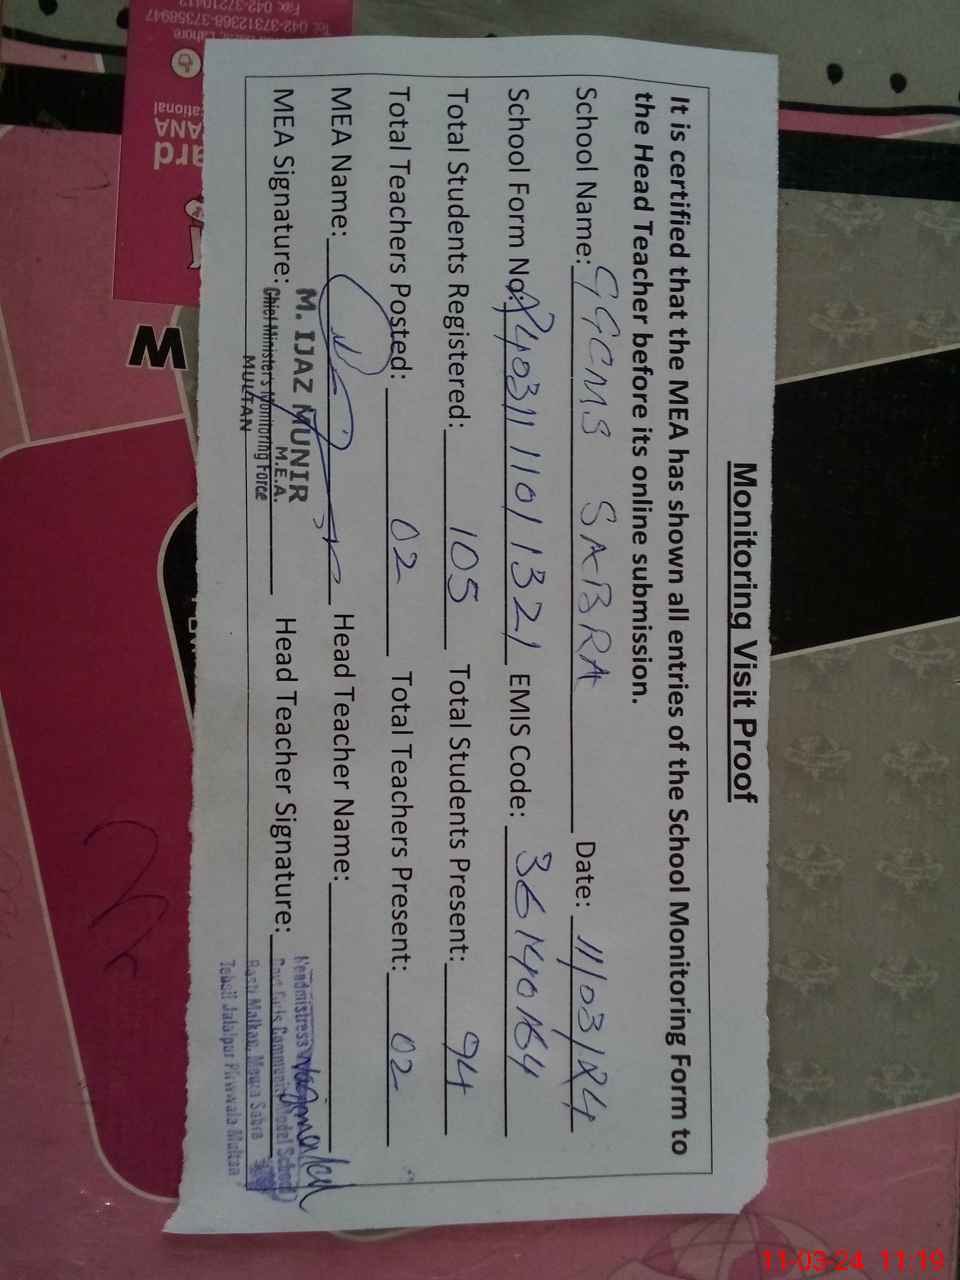 Monitoring Visit Proof
It is certified that the MEA has shown all entries of the School Monitoring Form to
the Head Teacher before its online submission.
School Name: GGCMS SABRA Date: 11/03/24
School Form No: 2403111101321 EMIS Code: 36140164
Total Students Registered: 105 Total Students Present: 94
Total Teachers Posted: 02 Total Teachers Present: 02
MEA Name: Head Teacher Name:
MEA Signature: Head Teacher Signature:
M. IJAZ MUNIR
M.E.A.
Chief Minister's Monitoring Force
MULTAN
Headmistress
Govt Girls Community Model School
Basti Malkan, Mouza Sabra
Tehsil Jalalpur Pirwala Multan
Tel: 042-37312368-37358947
Fax: 042-37210412
Lahore
ational
ANA
ard
M
11-03-24 11:19